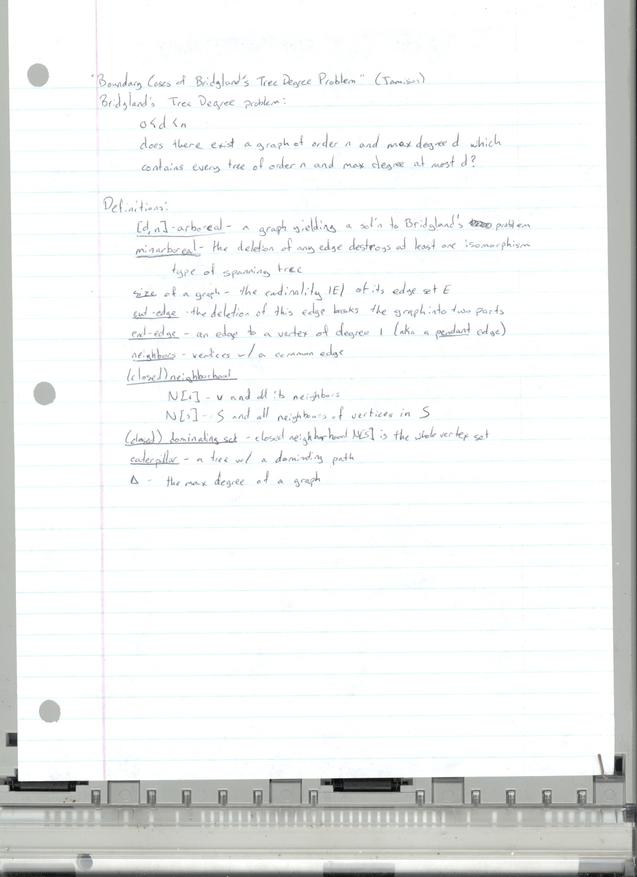 "Boundary Cases of Bridgland's Tree Degree Problem" (Jamison)
Bridgland's Tree Degree problem:
0<d<n
does there exist a graph of order n and max degree d which
contains every tree of order n and max degree at most d?
Definitions:
[d,n]-arboreal - a graph yielding a sol'n to Bridgland's problem
minarboreal - the deletion of any edge destroys at least one isomorphism
type of spanning tree
size of a graph - the cardinality |E| of its edge set E
cut-edge - the deletion of this edge breaks the graph into two parts
end-edge - an edge to a vertex of degree 1 (aka a pendant edge)
neighbors - vertices w/ a common edge
(closed) neighborhood
N[v] - v and all its neighbors
N[S] - S and all neighbours of vertices in S
(closed) dominating set - closed neighborhood N[S] is the whole vertex set
caterpillar - a tree w/ a dominating path
Δ - the max degree of a graph